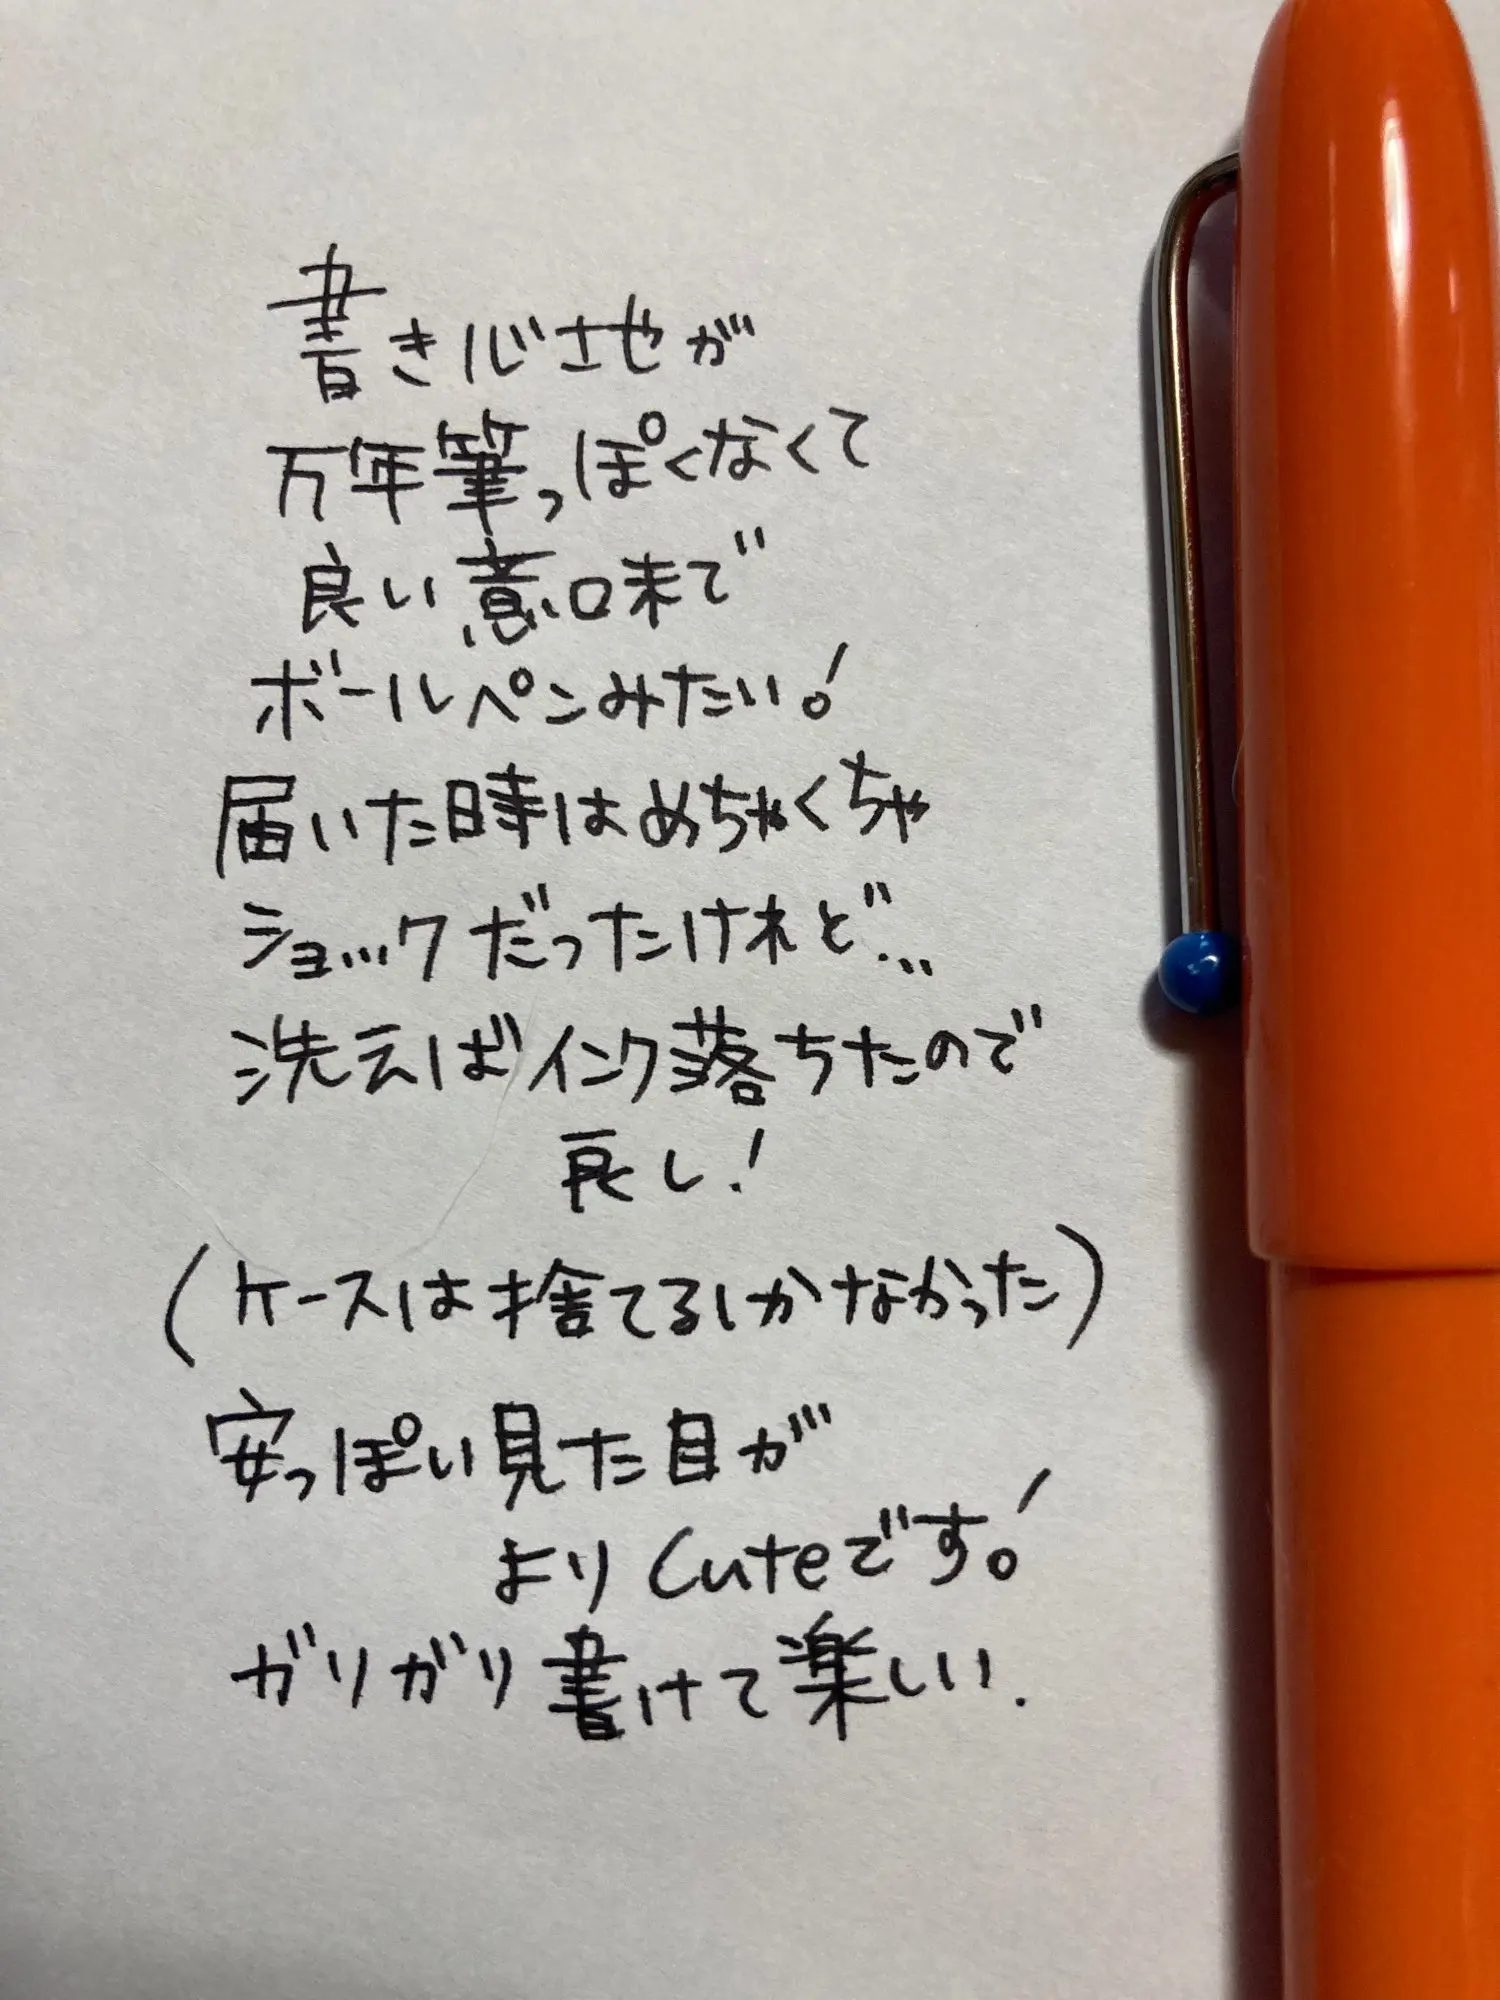 書き心地が
万年筆っぽくなくて
良い意味で
ボールペンみたい!
届いた時はめちゃくちゃ
ショックだったけれど...
洗えばインク落ちたので
良し!
(ケースは捨てるしかなかった)
安っぽい見た目が
よりCuteです!
ガリガリ書けて楽しい.